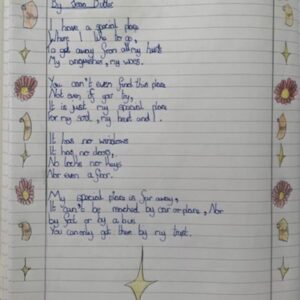 By Joan Dutter
I have a special place
Where I like to go,
To get away from all my hurts
My anguishes, my woes.
You can't even find this place
Not even if you try,
It is just my special place
For my soul, my heart and I.
It has no windows
It has no doors,
No locks nor keys
Nor even a floor.
My special place is far away,
It can't be reached by car or plane, Nor
by foot or by a bus
You can only get there by my trust.